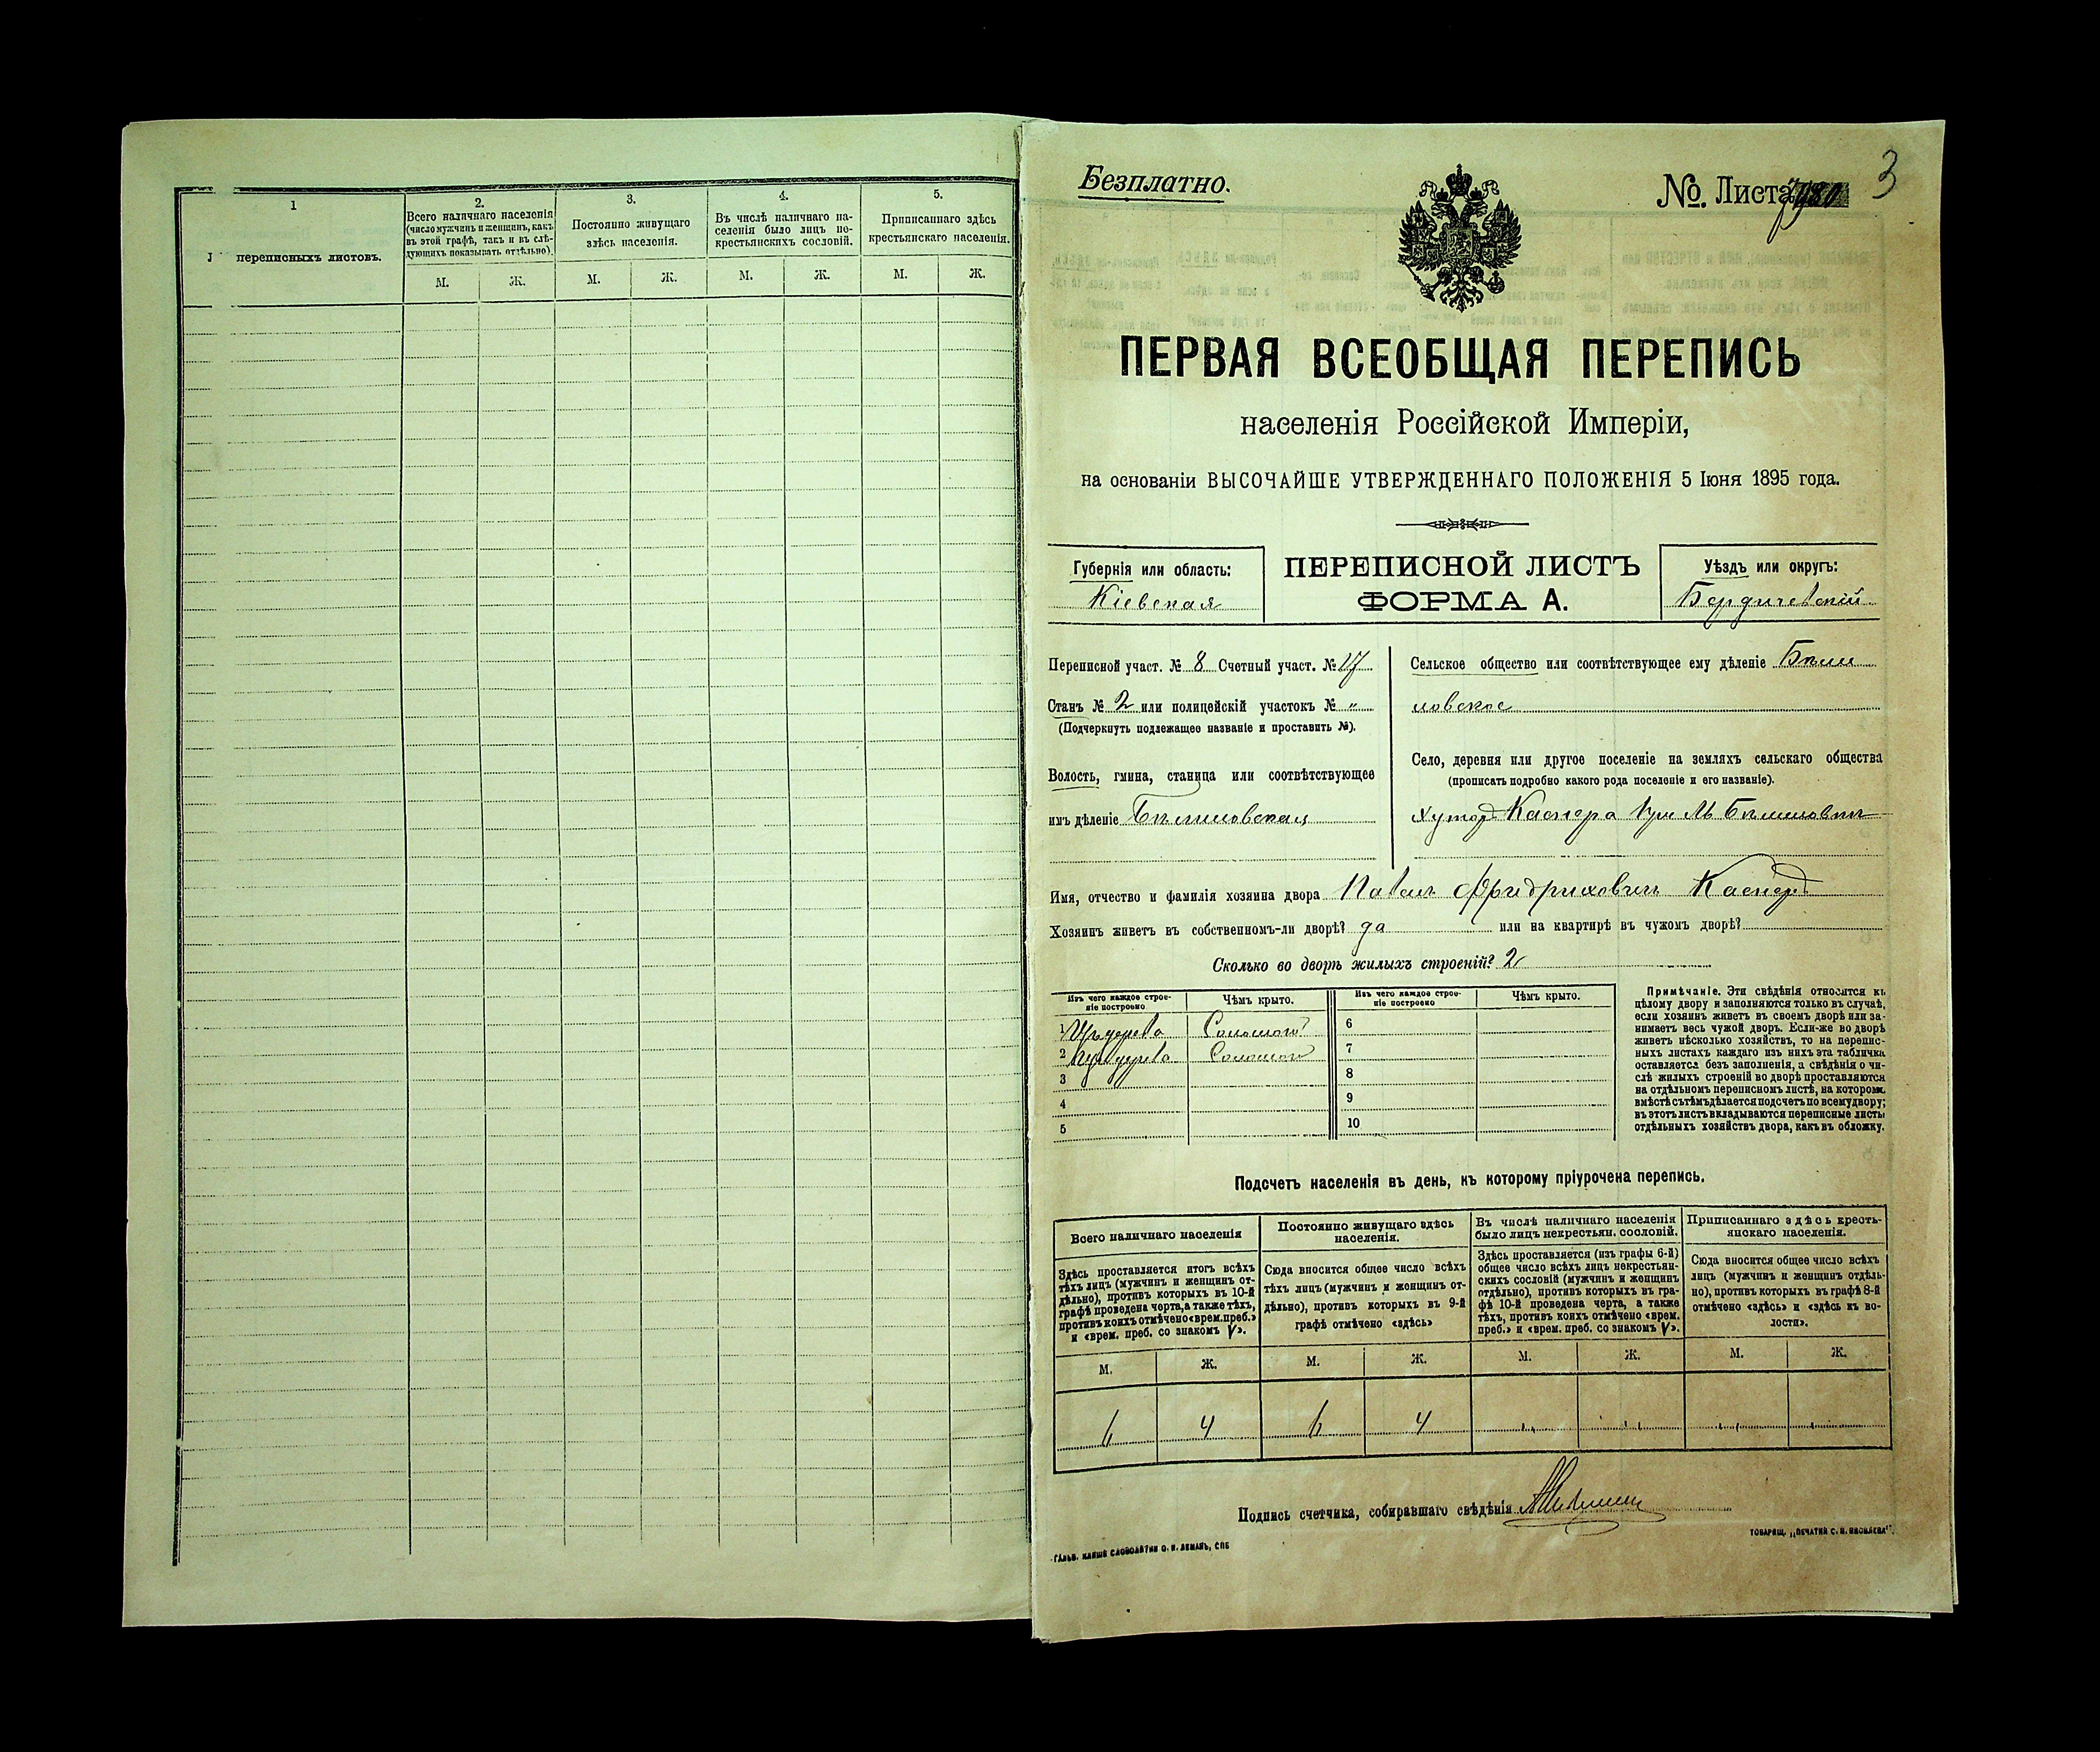 1
переписныхъ листовъ.
2.
Всего наличнаго населенія
(число мужчинъ и женщинъ, какъ
въ этой графѣ, такъ и въ слѣ-
дующихъ показывать отдѣльно).
3.
Постоянно живущаго
здѣсь населенія.
4.
Въ числѣ наличнаго на-
селенія было лицъ не-
крестьянскихъ сословій.
5.
Приписаннаго здѣсь
крестьянскаго населенія.
М. Ж. М. Ж. М. Ж. М. Ж.
Безплатно.
№. Листа
3
ПЕРВАЯ ВСЕОБЩАЯ ПЕРЕПИСЬ
населенія Россійской Имперіи,
на основаніи ВЫСОЧАЙШЕ УТВЕРЖДЕННАГО ПОЛОЖЕНІЯ 5 Іюня 1895 года.
Губернія или область:
Кіевская
ПЕРЕПИСНОЙ ЛИСТЪ
ФОРМА А.
Уѣздъ или округъ:
Бердичевскій
Переписной участ. № 8 Счетный участ. № 17
Станъ № 2 или полицейскій участокъ № „
(Подчеркнуть подлежащее названіе и проставить №).
Волость, гмина, станица или соотвѣтствующее
имъ дѣленіе Бѣлиловская
Сельское общество или соотвѣтствующее ему дѣленіе Бѣли
ловское
Село, деревня или другое поселеніе на земляхъ сельскаго общества
(прописать подробно какого рода поселеніе и его названіе).
Хутор Каспера при М Бѣлиловкѣ
Имя, отчество и фамилія хозяина двора Павелъ Фридриховичъ Касперъ
Хозяинъ живетъ въ собственномъ-ли дворѣ? да или на квартирѣ въ чужомъ дворѣ?
Сколько во дворѣ жилыхъ строеній? 2
Изъ чего каждое строе-
ніе построено
Чѣмъ крыто.
Изъ чего каждое строе-
ніе построено
Чѣмъ крыто.
1 Изъ дерева Соломою
2 Изъ дерева Соломою
3
4
5
6
7
8
9
10
Примѣчаніе. Эти свѣдѣнія относятся къ
цѣлому двору и заполняются только въ случаѣ,
если хозяинъ живетъ въ своемъ дворѣ или за-
нимаетъ весь чужой дворъ. Если-же во дворѣ
живетъ нѣсколько хозяйствъ, то на перепис-
ныхъ листахъ каждаго изъ нихъ эта табличка
оставляется безъ заполненія, а свѣдѣнія о чи-
слѣ жилыхъ строеній во дворѣ проставляются
на отдѣльномъ переписномъ листѣ, на которомъ
вмѣстѣ съ тѣмъ дѣлается подсчетъ по всему двору;
въ этотъ листъ вкладываются переписные листы
отдѣльныхъ хозяйствъ двора, какъ въ обложку.
Подсчетъ населенія въ день, къ которому пріурочена перепись.
Всего наличнаго населенія
Здѣсь проставляется итогъ всѣхъ
тѣхъ лицъ (мужчинъ и женщинъ от-
дѣльно), противъ которыхъ въ 10-й
графѣ проведена черта, а также тѣхъ,
противъ коихъ отмѣчено «врем. преб.»
и «врем. преб. со знакомъ V».
Постоянно живущаго здѣсь
населенія.
Сюда вносится общее число всѣхъ
тѣхъ лицъ (мужчинъ и женщинъ от-
дѣльно), противъ которыхъ въ 9-й
графѣ отмѣчено «здѣсь»
Въ числѣ наличнаго населенія
было лицъ некрестьян. сословій.
Здѣсь проставляется (изъ графы 6-й)
общее число всѣхъ лицъ некрестьян-
скихъ сословій (мужчинъ и женщинъ
отдѣльно), противъ которыхъ въ гра-
фѣ 10-й проведена черта, а также
тѣхъ, противъ коихъ отмѣчено «врем.
преб.» и «врем. преб. со знакомъ V».
Приписаннаго здѣсь кресть-
янскаго населенія.
Сюда вносится общее число всѣхъ
лицъ (мужчинъ и женщинъ отдѣль-
но), противъ которыхъ въ графѣ 8-й
отмѣчено «здѣсь» и «здѣсь къ во-
лости».
М. Ж. М. Ж. М. Ж. М. Ж.
6 4 6 4 „ „ „ „
Подпись счетчика, собиравшаго свѣдѣнія
ГАЛЬВ. КЛИШЕ СЛОВОЛИТНИ О. И. ЛЕМАНЪ, СПБ
ТОВАРИЩ. „ПЕЧАТНИ С. П. ЯКОВЛЕВА".